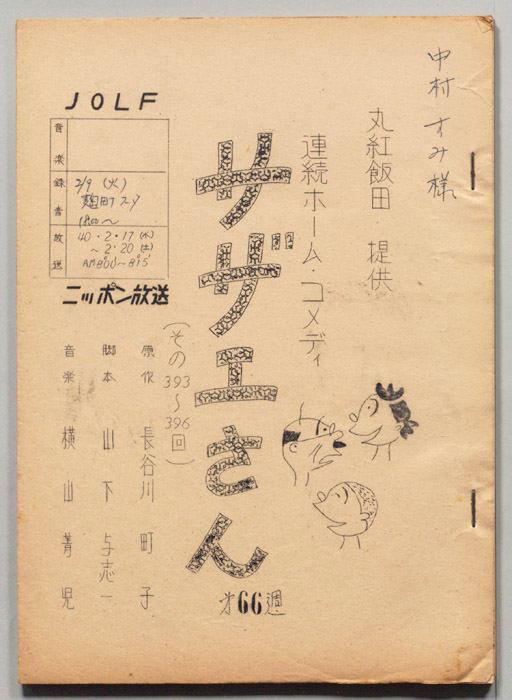 中村すみ様
丸紅飯田 提供
連続ホーム・コメディ
サザエさん
(その393～396回)
才66週
JOLF
音楽
録音 2/9 (火)
麹町スタジオ
1800～
放送 40・2・17(水)
～2・20(土)
AM800～815
ニッポン放送
原作 長谷川町子
脚本 山下与志一
音楽 横山菁児